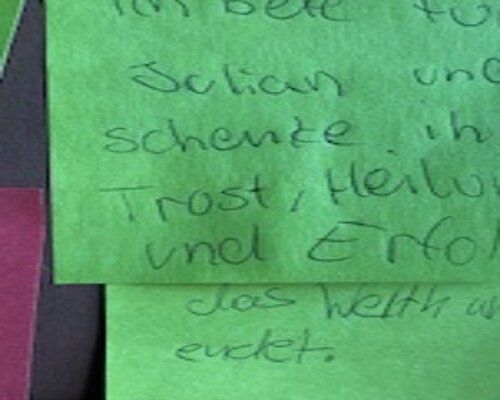 Ich bete fü
Julian und
schenke ih
Trost, Heilu
und Erfol
das Welth
endet.